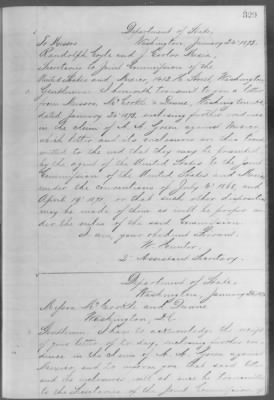 329
Department of State,
Washington, January 24, 1873.
To Messrs
Randolph Coyle and J. Carlos Mexia,
Secretaries to Joint Commission of the
United States and Mexico, H Street, Washington
Gentlemen: I herewith transmit to you a letter
from Messrs. McCorkle & Deane, Washington, D.C.
dated January 24, 1873, enclosing further evidence
in the claim of A. A. Green against Mexico,
which letter and its enclosures are thus
to the end that they may be presented
by the agent of the United States to the Joint
Commission of the United States and Mexico
under the conventions of July 4, 1868, and
April 19, 1871, or that such other disposition
may be made of them as will be proper un-
der the rules of the said Commission.
I am, your obedient Servant.
W. Hunter,
2d Assistant Secretary.
Department of State,
Washington, January 24, 1873
Messrs McCorkle and Deane
Washington, D.C.
Gentlemen: I have to acknowledge the receipt
of your letter of to-day, enclosing further evi-
dence in the claim of A. A. Green against
Mexico, and to inform you that said letter
and its enclosures will at once be
to the Secretaries of the Joint Commission